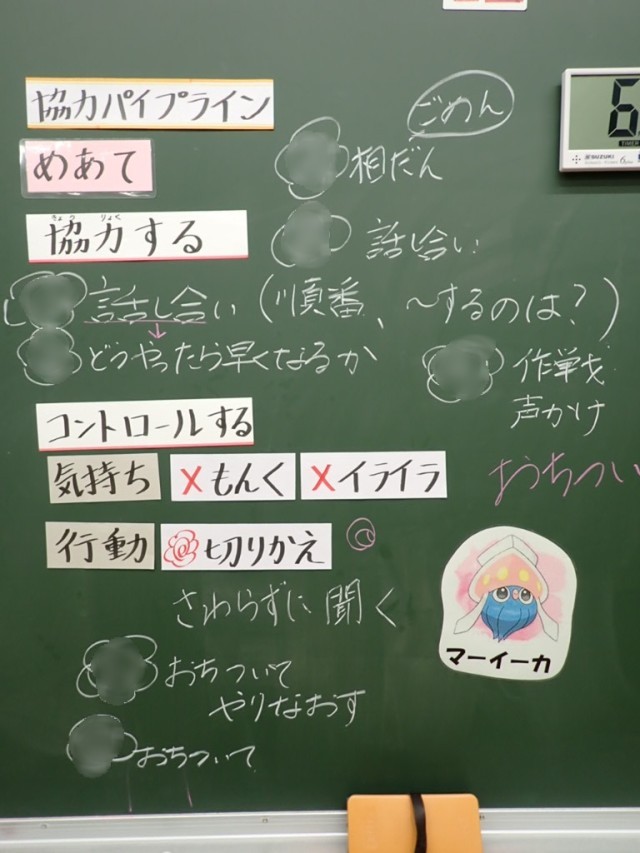 協力パイプライン
ごめん
6
TIMER
SUZUKI
めあて
相だん
きょう りょく
協力する
話し合い
話し合い(順番、~するのは?)
どうやったら早くなるか
作戦
声かけ
コントロールする
気持ち
×もんく
×イライラ
おちつい
行動
切りかえ
さわらずに聞く
マーイーカ
おちついて
やりなおす
おちついて